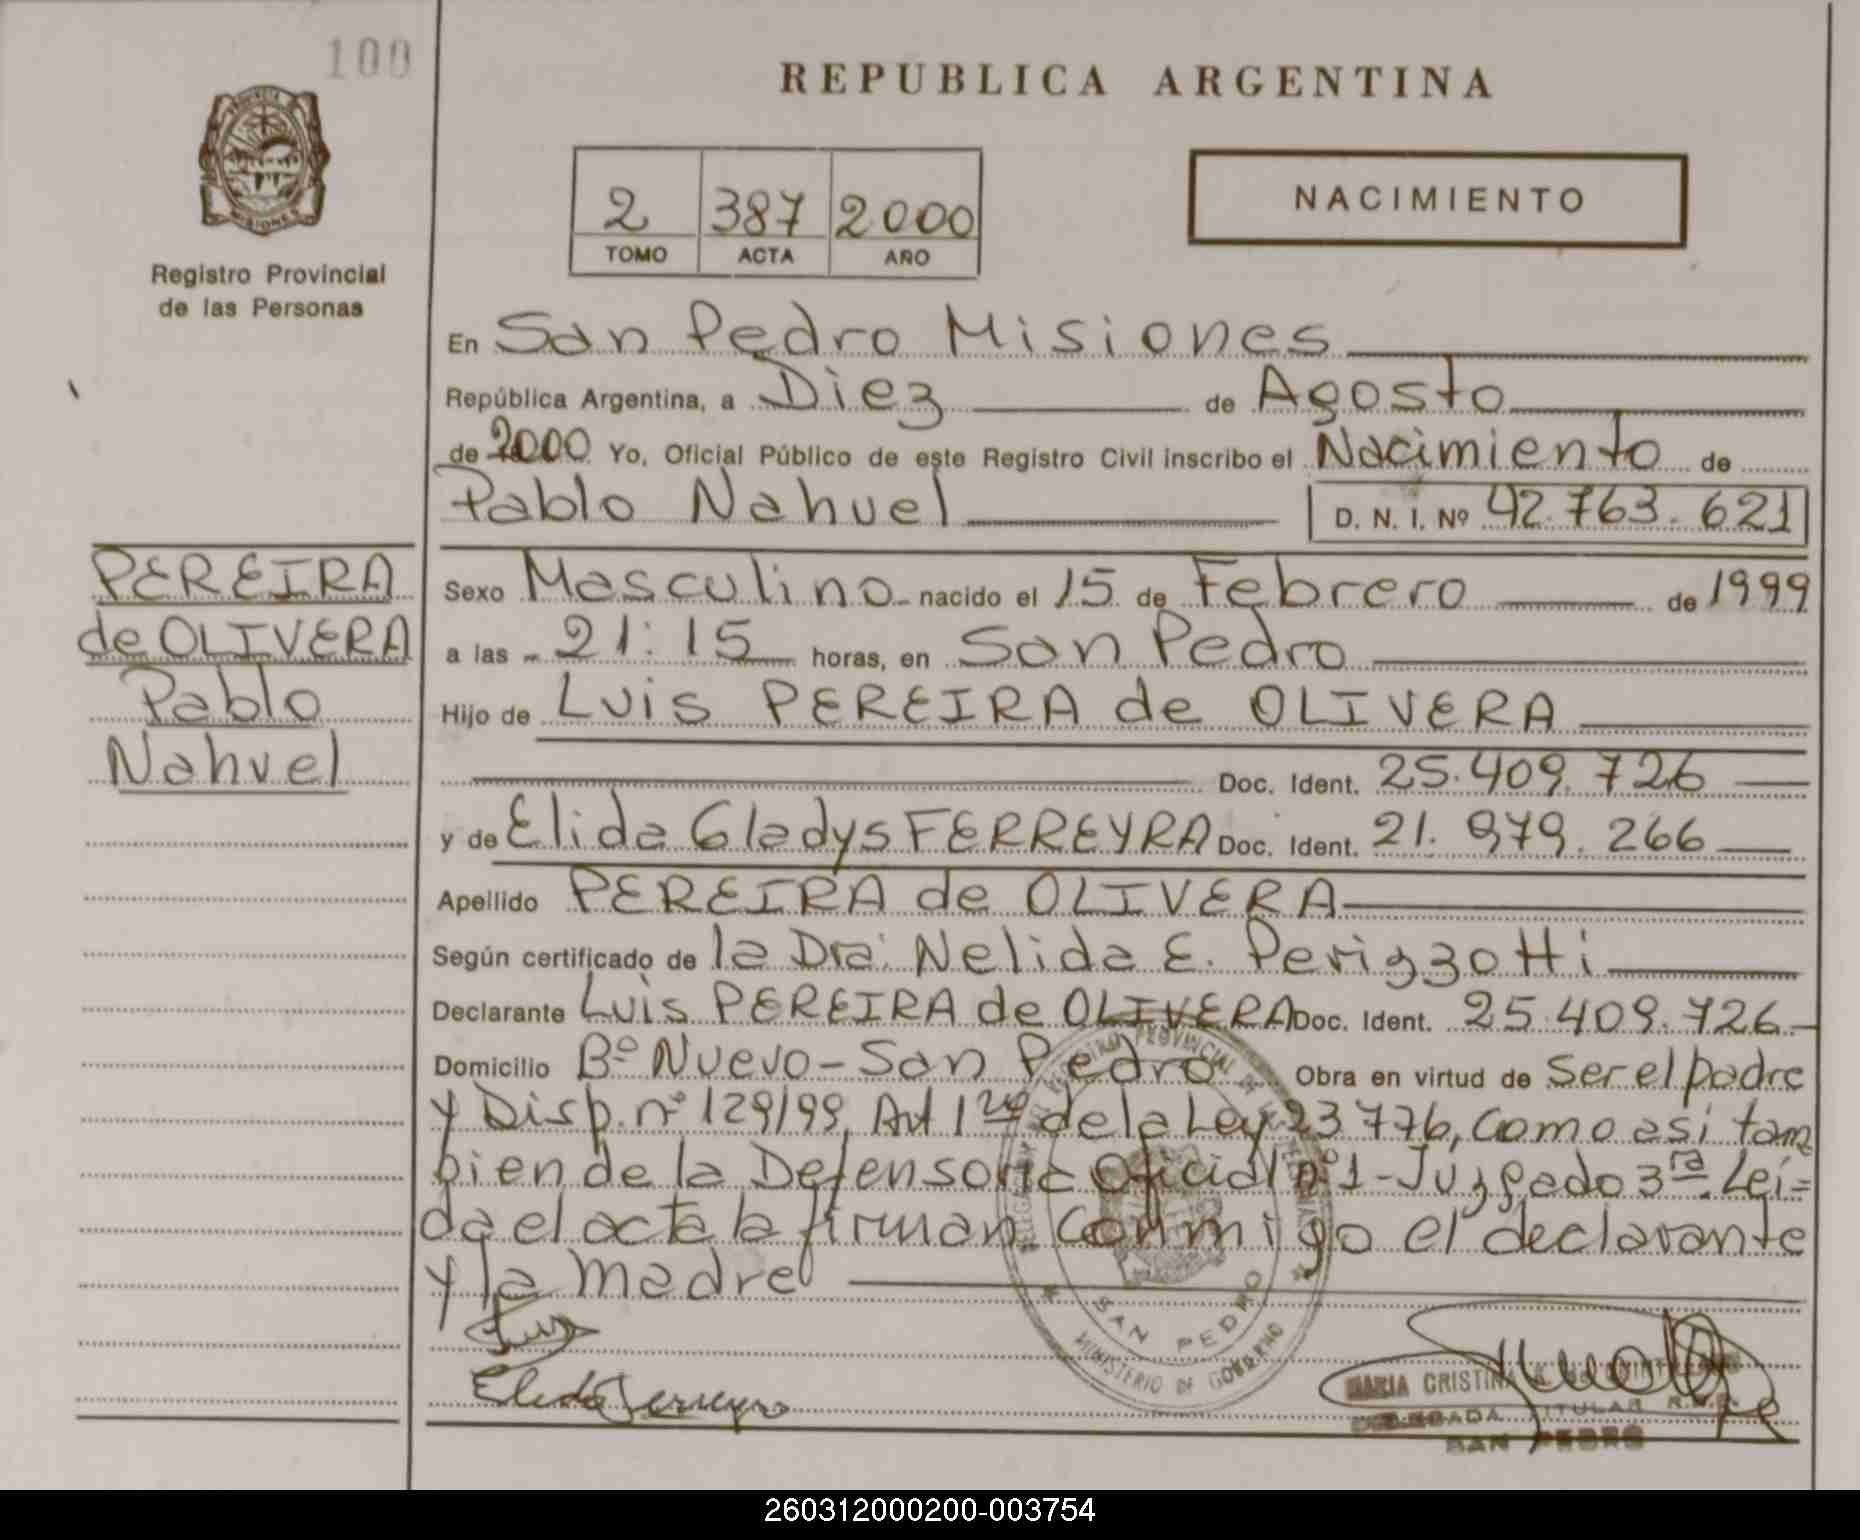 100
REPUBLICA ARGENTINA
PROVINCIA
MISIONES
Registro Provincial
de las Personas
2 387 2000
TOMO ACTA AÑO
NACIMIENTO
En San Pedro Misiones
República Argentina, a Diez de Agosto
de 2000 Yo, Oficial Público de este Registro Civil inscribo el Nacimiento de
Pablo Nahuel D. N. I. Nº 42.763.621
PEREIRA
de OLIVERA
Pablo
Nahuel
Sexo Masculino nacido el 15 de Febrero de 1999
a las 21:15 horas, en San Pedro
Hijo de Luis PEREIRA de OLIVERA
Doc. Ident. 25.409.726
y de Elida Gladys FERREYRA Doc. Ident. 21.979.266
Apellido PEREIRA de OLIVERA
Según certificado de la Dra: Nelida E. Perizzotti
Declarante Luis PEREIRA de OLIVERA Doc. Ident. 25.409.726
Domicilio Bº Nuevo - San Pedro Obra en virtud de Ser el padre
y Disp. nº 129/99, Art 1º de la Ley 23776, Como asi tam
bien de la Defensoria Oficial nº 1 - Juzgado 3ra. Leí=
da el acta la firman conmigo el declarante
y la madre
Elida Ferreyra
SAN PEDRO
MINISTERIO DE GOBIERNO
MARIA CRISTINA
DELEGADA TITULAR R.P.P.
SAN PEDRO
260312000200-003754